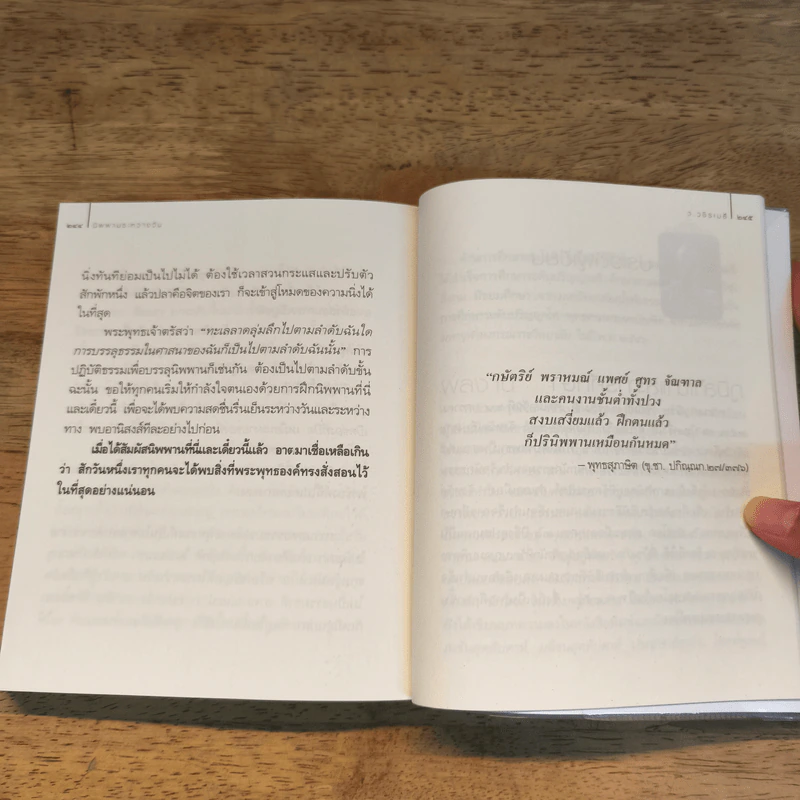 ๒๔๔ นิพพานระหว่างวัน
นิ่งทันทีย่อมเป็นไปไม่ได้ ต้องใช้เวลาสวนกระแสและปรับตัว
สักพักหนึ่ง แล้วปลาคือจิตของเรา ก็จะเข้าสู่โหมดของความนิ่งได้
ในที่สุด
พระพุทธเจ้าตรัสว่า “ทะเลลาดลุ่มลึกไปตามลำดับฉันใด
การบรรลุธรรมในศาสนาของฉันก็เป็นไปตามลำดับฉันนั้น” การ
ปฏิบัติธรรมเพื่อบรรลุนิพพานก็เช่นกัน ต้องเป็นไปตามลำดับขั้น
ฉะนั้น ขอให้ทุกคนเริ่มให้กำลังใจตนเองด้วยการฝึกนิพพานที่นี่
และเดี๋ยวนี้ เพื่อจะได้พบความสดชื่นรื่นเย็นระหว่างวันและระหว่าง
ทาง พบอานิสงส์ทีละอย่างไปก่อน
เมื่อได้สัมผัสนิพพานที่นี่และเดี๋ยวนี้แล้ว อาตมาเชื่อเหลือเกิน
ว่า สักวันหนึ่งเราทุกคนจะได้พบสิ่งที่พระพุทธองค์ทรงสั่งสอนไว้
ในที่สุดอย่างแน่นอน
ว.วชิรเมธี ๒๔๕
“กษัตริย์ พราหมณ์ แพศย์ ศูทร จัณฑาล
และคนงานชั้นต่ำทั้งปวง
สงบเสงี่ยมแล้ว ฝึกตนแล้ว
ก็ปรินิพพานเหมือนกันหมด”
– พุทธสุภาษิต (ขุ.ชา. ปกิณฺณก.๒๗/๓๗๖)